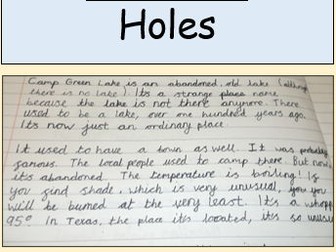 Holes
Camp Green Lake is an abandoned, old lake (although
there is no lake! Its a strange place name
because the lake is not there anymore. There
used to be a lake, over one hundred years ago.
Its now just an ordinary place.
It used to have a town as well. It was probably
famous. The local people used to camp there. But now
its abandoned. The temperature is boiling! If
you find shade, which is very unusual, you
will be burned at the very least. It's a whopp
95° in Texas, the place its located, it's so unusu